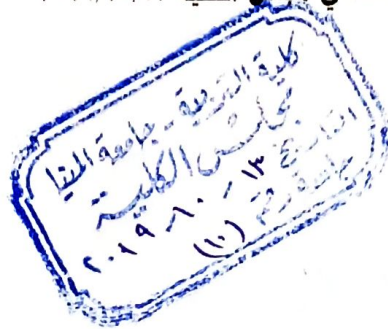 كلية التربية - جامعة المنيا
مجلس الكلية
التاريخ ١٣ - ١٠ - ٢٠١٩
جلسة رقم (١٠)